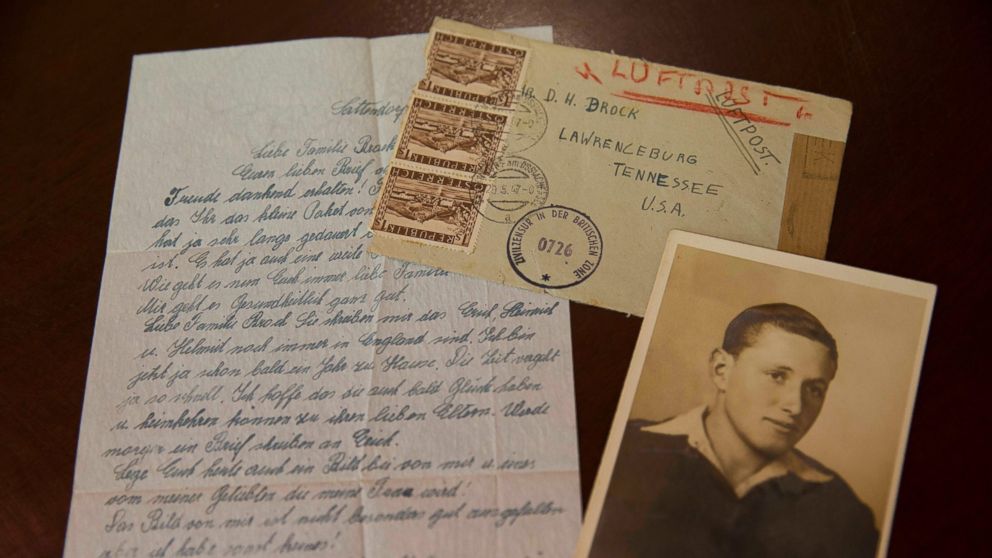 Sattendorf
Liebe Familie Brock
Euren lieben Brief
Freude dankend erhalten!
das Ihr das kleine Paket von
hat ja sehr lange gedauert
ist. Es hat ja auch eine weile
Wie geht es nun Euch immer liebe Familie
Mir geht es Gesundheitlich ganz gut.
Liebe Familie Brock Sie schreiben mir das Erich, Heinrich
u. Helmut noch immer in England sind. Ich bin
jetzt ja schon bald ein Jahr zu Hause. Die Zeit vergeht
ja so schnell. Ich hoffe das sie auch bald Glück haben
u. heimkehren können zu ihren lieben Eltern. Werde
morgen ein Brief schreiben an Erich.
Lege Euch heute auch ein Bild bei von mir u. eines
vom meiner Geliebten die meine Frau wird!
Das Bild von mir ist nicht besonders gut ausgefallen
aber ich habe sonst keines!
REPUBLIK ÖSTERREICH
REPUBLIK ÖSTERREICH
REPUBLIK ÖSTERREICH
LUFTPOST
LUFTPOST.
D. H. BROCK
LAWRENCEBURG
TENNESSEE
U.S.A.
ZIVILZENSUR IN DER BRITISCHEN ZONE
0726